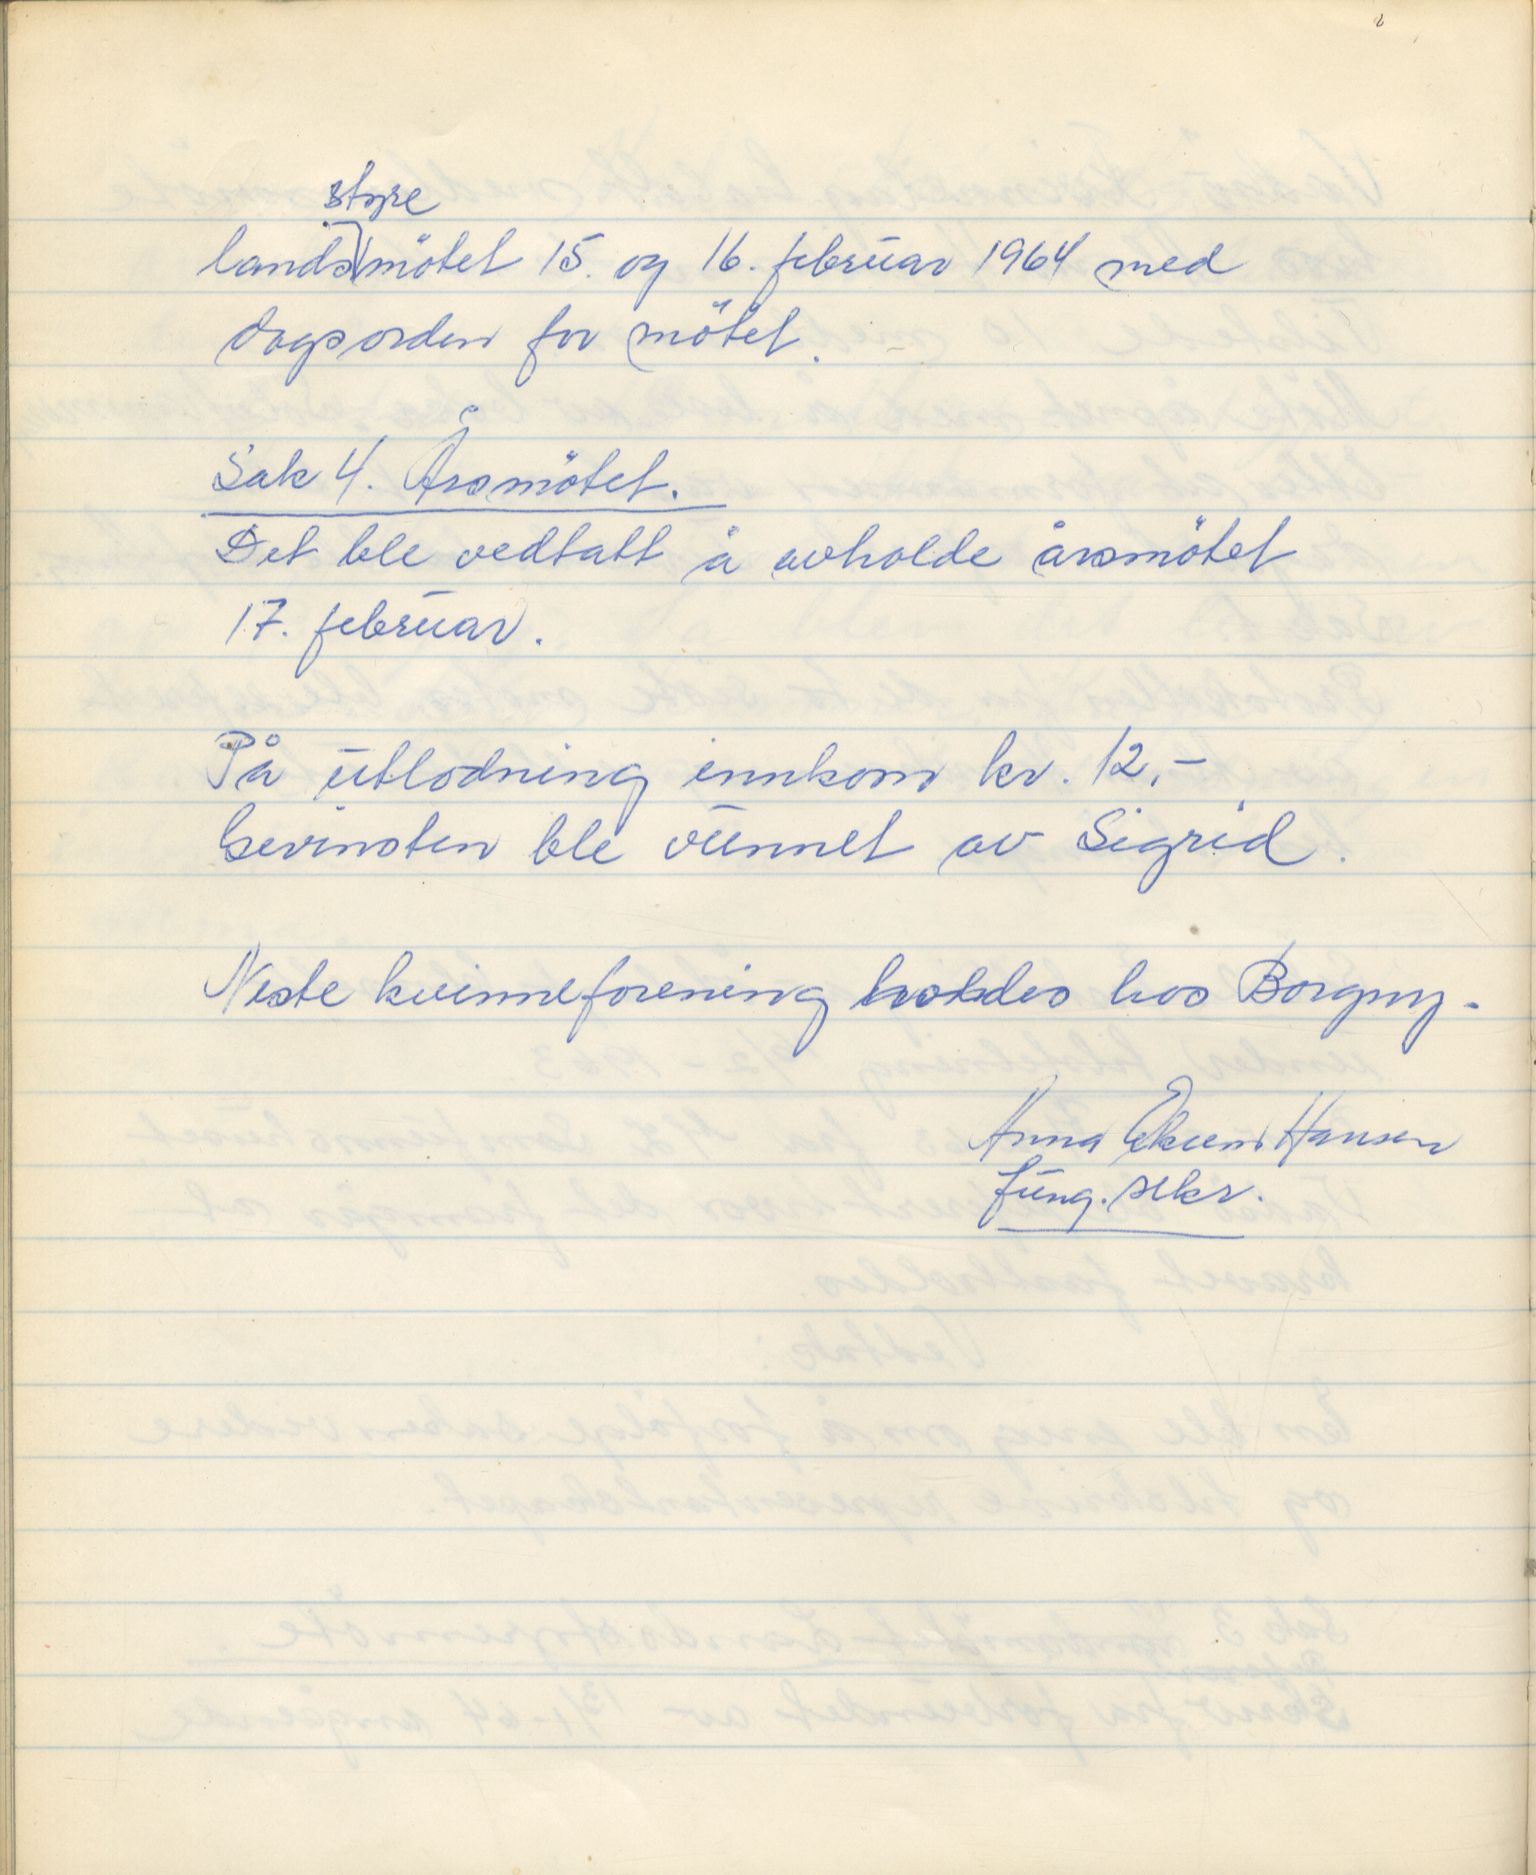 styre
landsmötet 15. og 16. februar 1964 med
dagsorden for mötet.
Sak 4. Årsmötet.
Det ble vedtatt å avholde årsmötet
17. februar.
På utlodning innkom kr. 12,-
Gevinsten ble vunnet av Sigrid.
Neste kvinneforening holdes hos Borgny.
Anna Ekrem Hansen
fung. sekr.